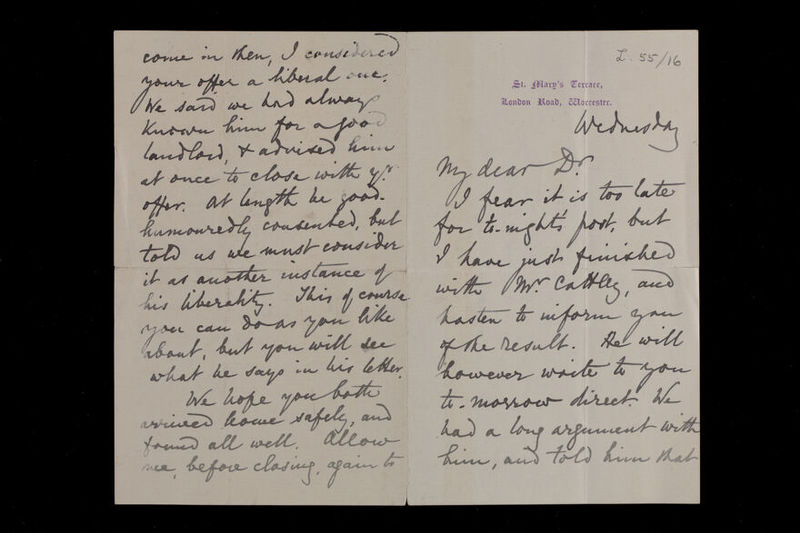 come in then, I considered
your offer a liberal one.
We said we had always
known him for a good
landlord, & advised him
at once to close with yr
offer. At length he good-
humouredly consented, but
told us we must consider
it as another instance of
his liberality. This of course
you can do as you like
about, but you will see
what he says in his letter.
We hope you both
arrived home safely, and
found all well. Allow
me, before closing, again to
L. 55/16
St. Mary's Terrace,
London Road, Worcester.
Wednesday
My dear Dr.
I fear it is too late
for to-night's post, but
I have just finished
with Mr Cattley, and
hasten to inform you
of the result. He will
however write to you
to-morrow direct. We
had a long argument with
him, and told him that